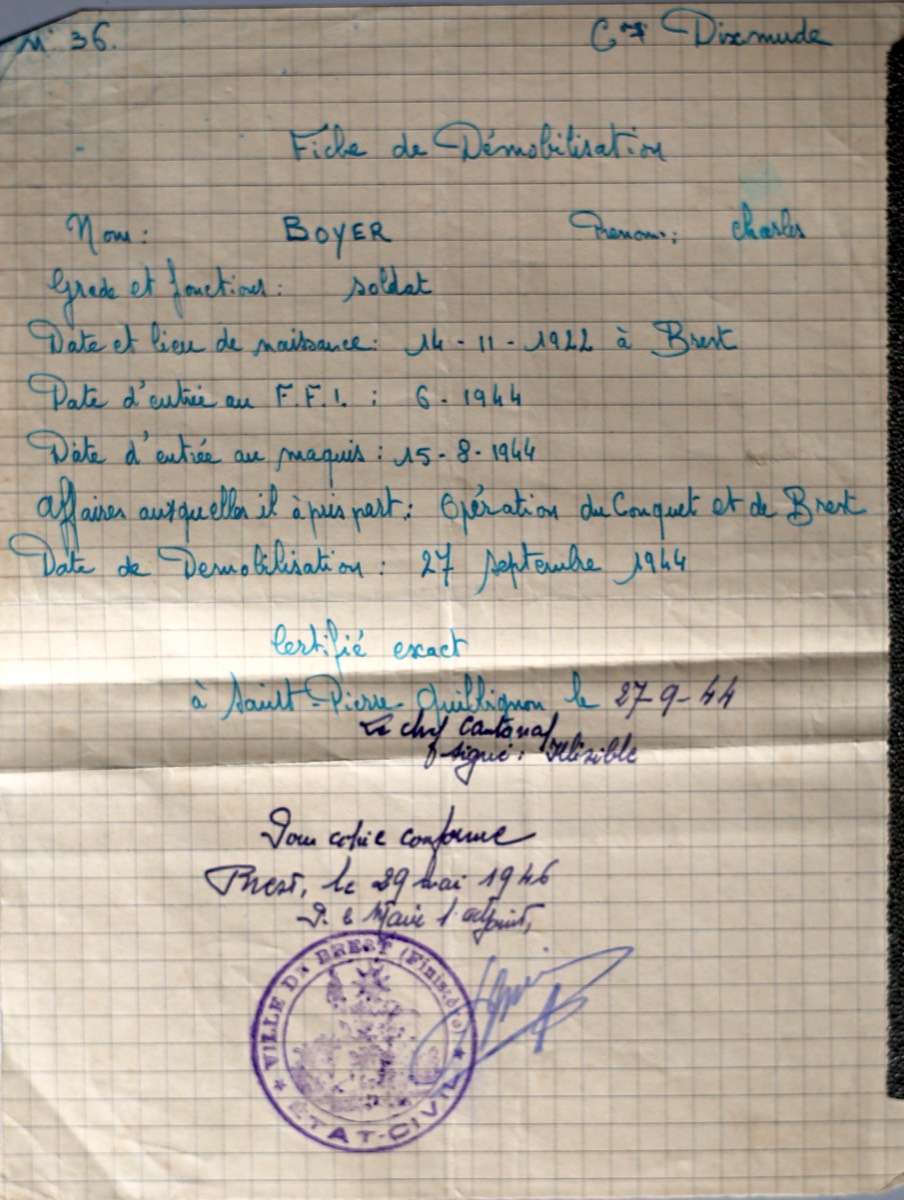 N° 36.
Cie Dixmude
Fiche de Démobilisation
Nom: BOYER Prenom: charles
Grade et fonctions: soldat
Date et lieu de naissance: 14-11-1922 à Brest
Date d'entrée au F.F.I. : 6-1944
Date d'entrée au maquis: 15-8-1944
Affaires auxquelles il à pris part: Opération du Conquet et de Brest
Date de Demobilisation: 27 septembre 1944
Certifié exact
à Saint-Pierre-Quilbignon le 27-9-44
Le chef cantonal
signé: Illisible
Pour copie conforme
Brest, le 29 mai 1946
P. le Maire l'adjoint,
VILLE DE BREST (Finistère)
ETAT-CIVIL